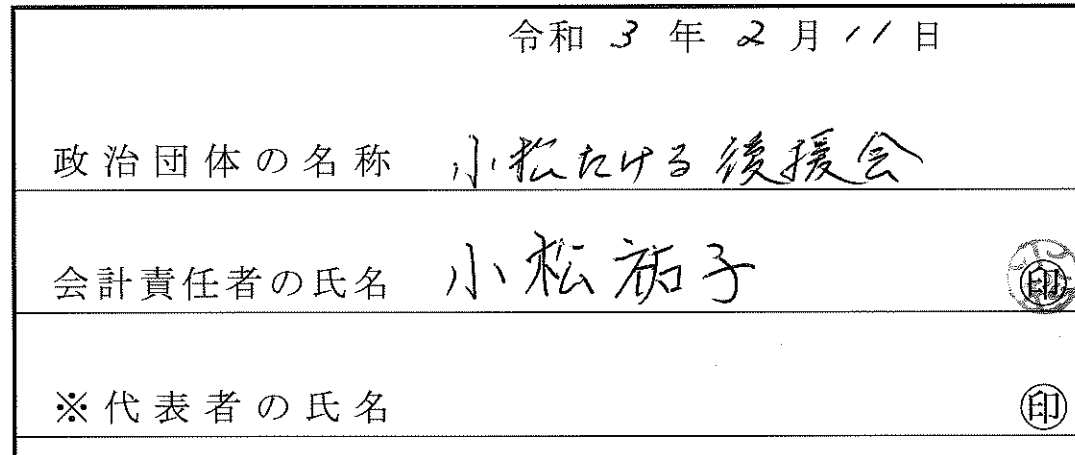 令和 3 年 2 月 11 日
政治団体の名称 小松たける後援会
会計責任者の氏名 小松祐子 ㊞
※代表者の氏名 ㊞